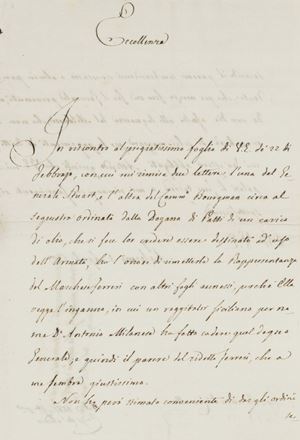 Eccellenza
In riscontro al pregiatissimo foglio di V.E. de' 22 di
Febbrajo, con cui mi rimise due lettere l'una del Ge
nerale Stuart, e l'altra del circa al
sequestro ordinato dalla Dogana di Patti di un carico
di olio, che si fece los creder essere destinato ad uso
dell'Armata, ho l'onore di rimetterle la Rappresentanza
del Marchese Ferreri con altri fogli annessi, perchè Ella
vegga l'inganno, in cui un siciliano per no
me D. Antonio Milanese ha fatto cadere quel degno
Generale, e quindi il parere del Ferreri, che a
me sembra giustissimo.
Non ho però stimato conveniente di dar gli ordini